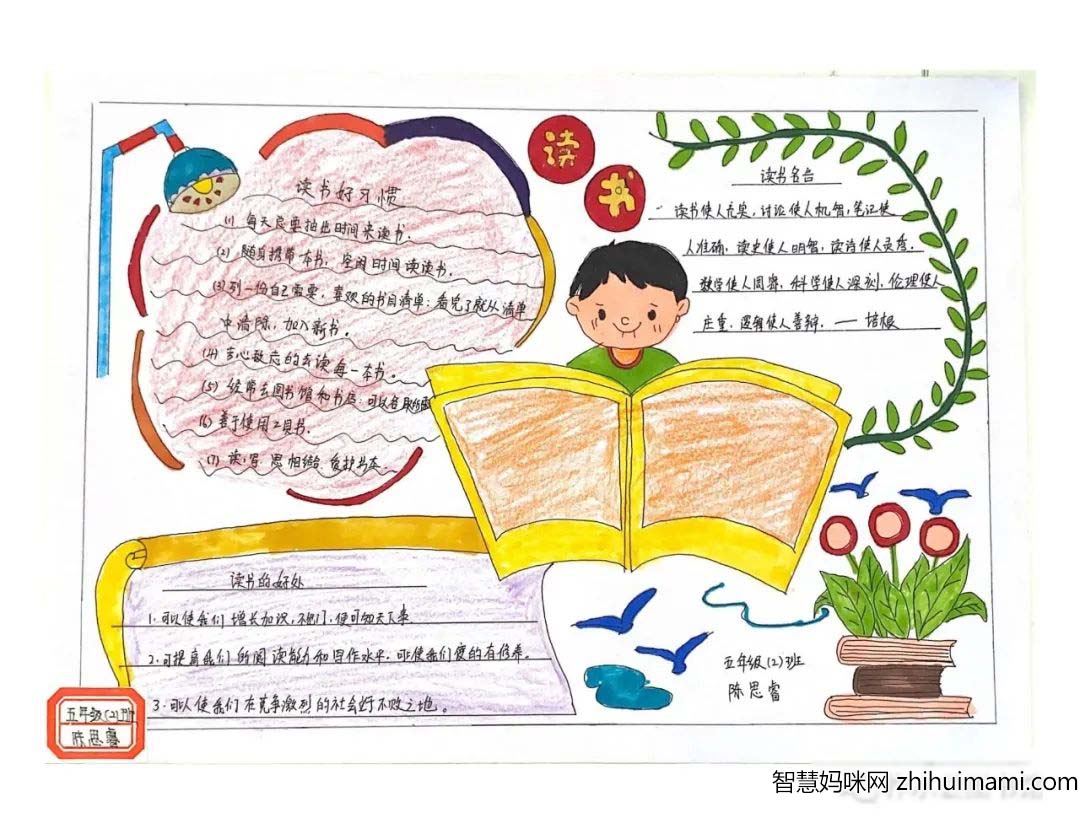 读书
读书好习惯
(1) 每天总要抽出时间来读书.
(2) 随身携带一本书, 空闲时间读读书.
(3) 列一份自己需要, 喜欢的书目清单: 看完了就从清单
中清除, 加入新书.
(4) 的去读每一本书.
(5) 经常去图书馆和书店: 可以
(6) 善于使用工具书.
(7) 读, 写, 思相结 爱护书本.
读书名言
读书使人充实, 讨论使人机智, 笔记使
人准确, 读史使人明智, 读诗使人灵秀.
数学使人周密, 科学使人深刻, 伦理使人
庄重, 逻辑使人善辩. —— 培根
读书的好处
1. 可以使我们增长知识, 不出门, 便可知天下事
2. 可提高我们的阅读能力和写作水平, 可使我们变的有修养.
3. 可以使我们在竞争激烈的社会好不败之地.
五年级(2)班
陈思睿
五年级(2)班
陈思睿
智慧妈咪网 zhihuimami.com